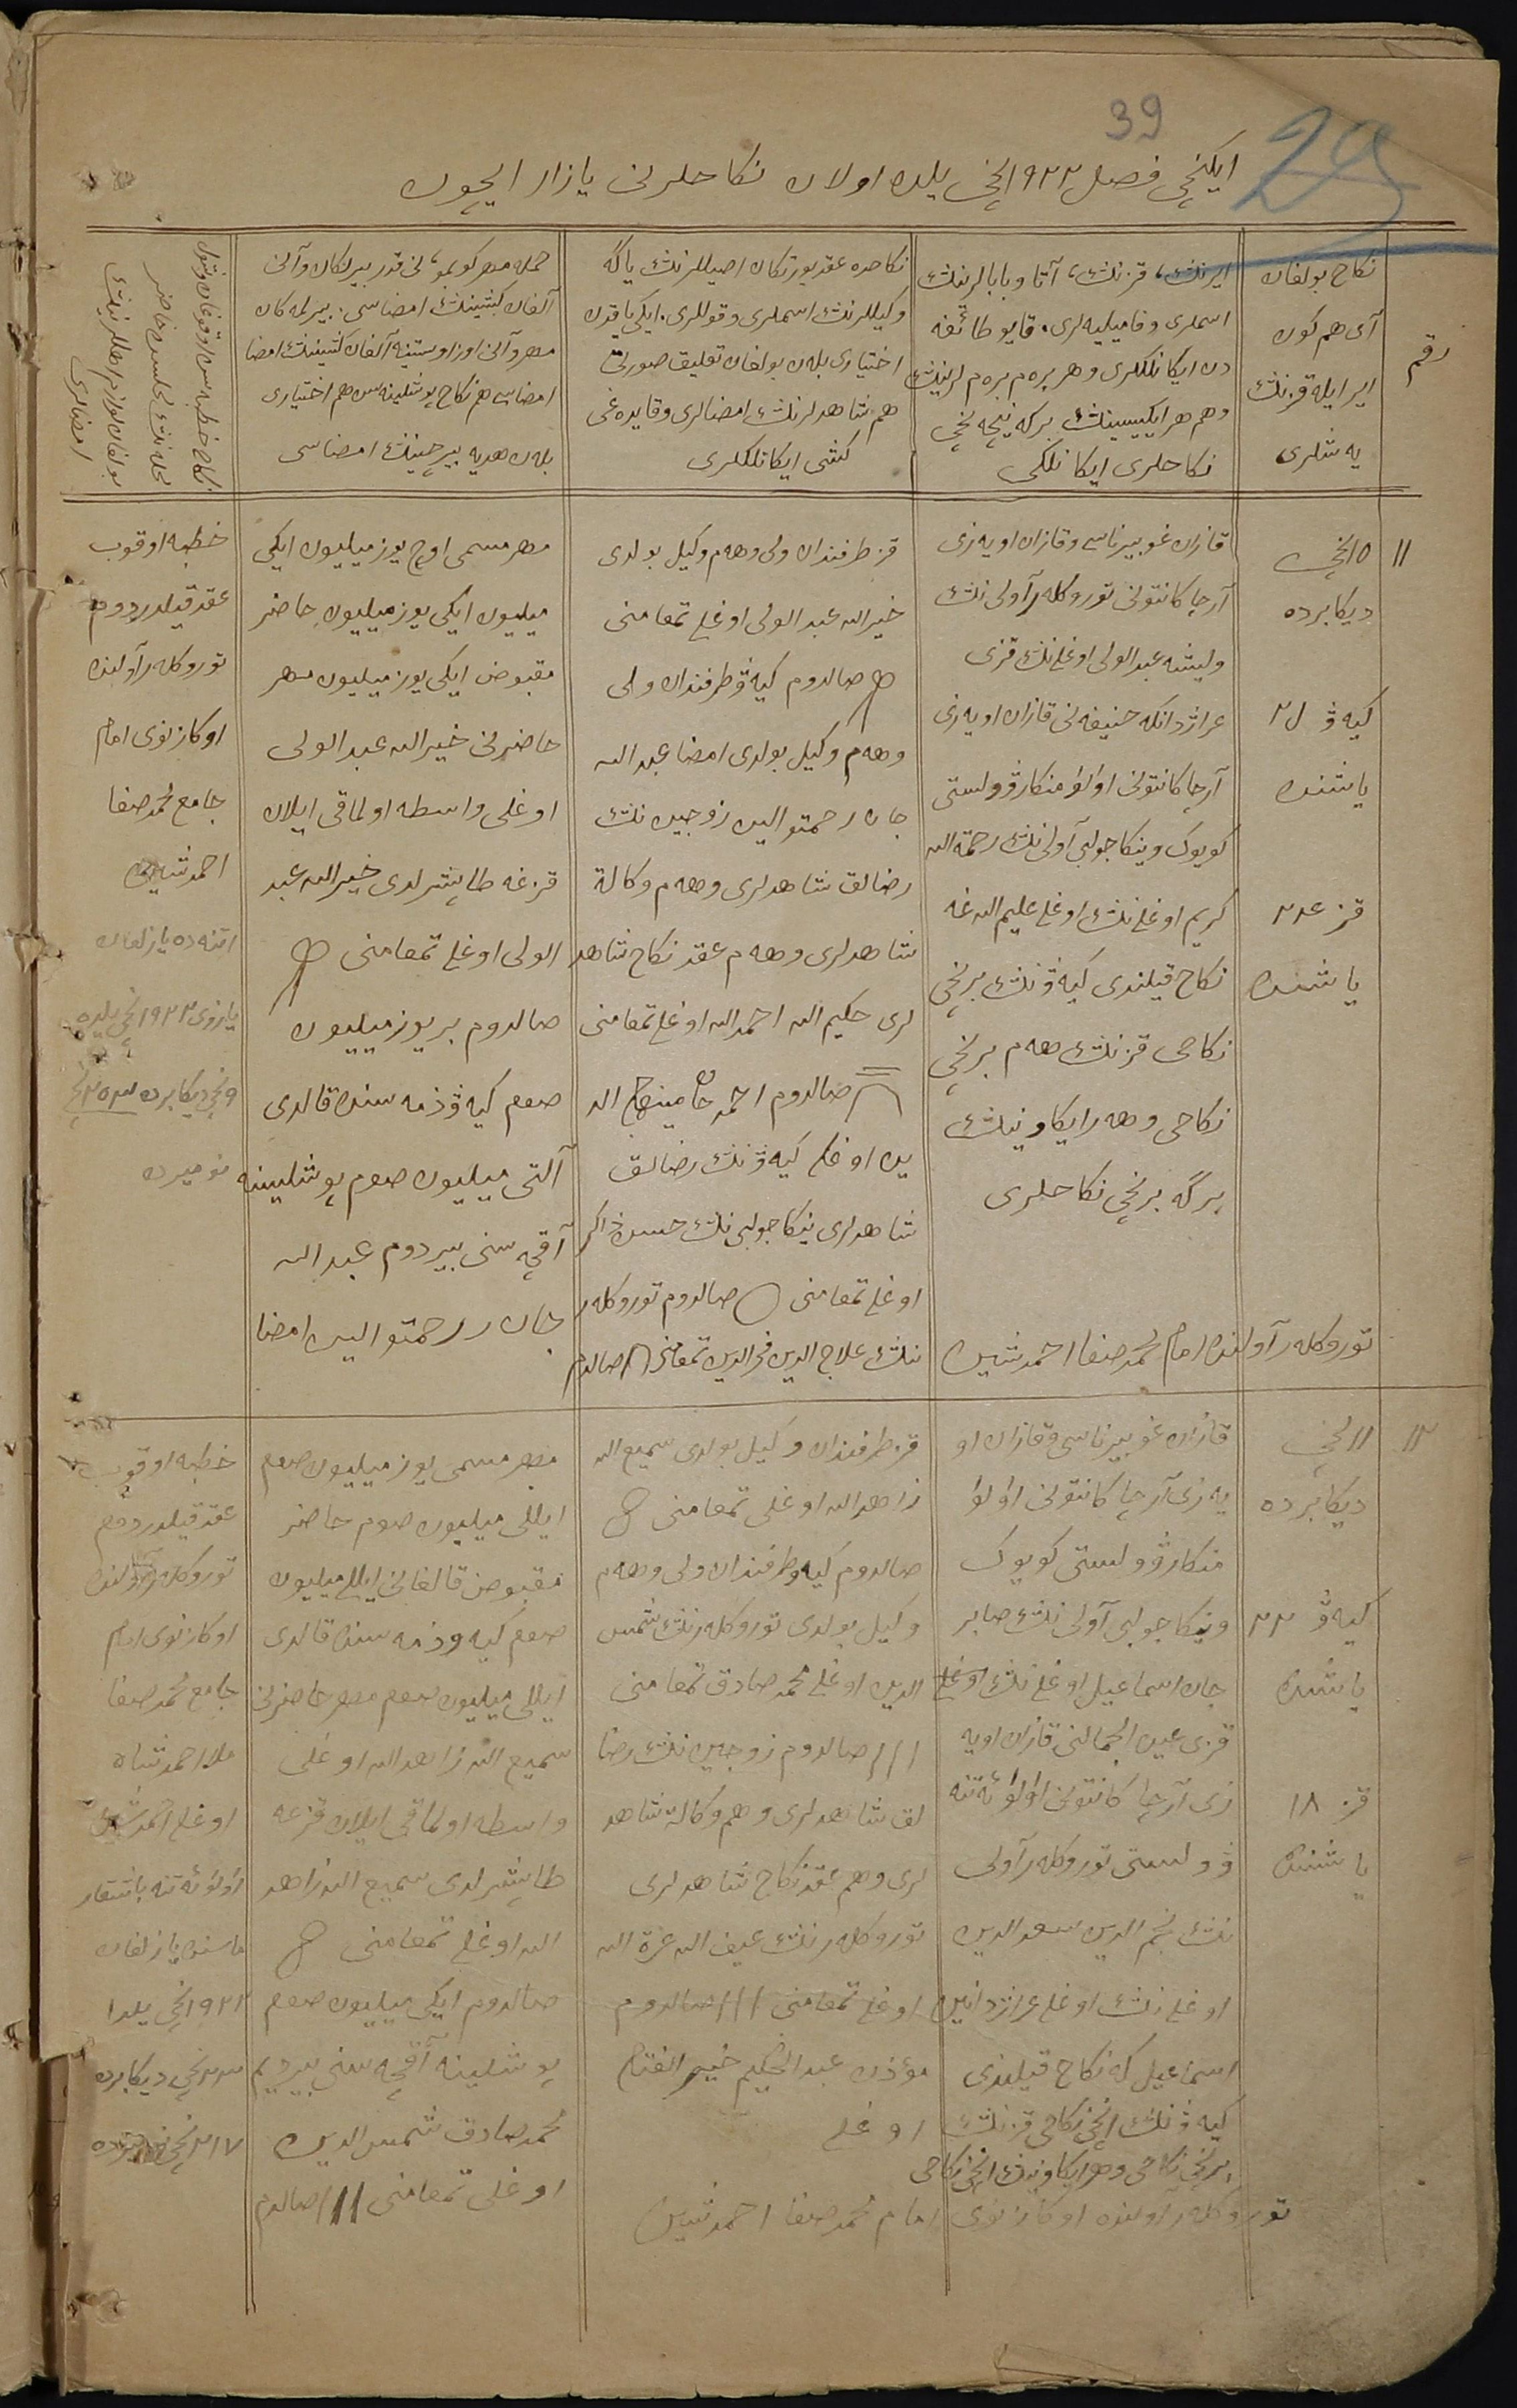 39
29
ایكنچی فصل ۱۹۲۲ انچی یلده اولان نكاحلرنی یازار ایچون
رقم
نكاح بولغان
آی هم كون
ایر ایله قزننڭ
یه شلری
ایرننڭ، قزننڭ، آتا و بابالرینڭ
اسملری و فامیلیه لری. قایو طائفه
دن ایكانلكلری و هر بره م بره م لرینڭ
وهم هر ایكیسینڭ بركه نیچه نچی
نكاحلری ایكانلكی
نكاحده عقد یورتكان اصیللرننڭ یاكه
وكیللرننڭ اسملری و قوللری. ایكی یاقدن
اختیاری بله ن بولغان تعلیق صورتی
هم شاهدلرننڭ امضالری و قایده غی
كشی ایكانلكلری
جمله مهر كوبمو، نی قدر بیرلكان و آنی
آلغان كشینڭ امضاسی. بیرلمه كان
مهر و آنی اوز اوستینه آلغان كشینڭ امضا
امضاسی هم نكاح پوشلینه سن هم اختیاری
بله ن هدیه بیرچینڭ امضاسی
نكاح خطبه سن اوقوغان و شول
محله ننڭ مجلسده حاضر
بولغان ملالرننڭ
امضالری
۱۱
۱۵ انچی
دیكابرده
كیه ۋ ۲۱
یاشنده
قز ۲۴
یاشنده
قازان غوبیرناسی و قازان اویه زی
آرچا كانتونی توروكله ر آولی ننڭ
ولیشه عبدالولی اوغلی ننڭ قزی
حنیفه نی قازان اویه زی
آرچا كانتونی اولوا منكار ۋولستی
كویوك وینكا جولبی آولی ننڭ رحمة الله
كریم اوغلی ننڭ اوغلی علیم الله غه
نكاح قیلندی كیه ۋننڭ برنچی
نكاحی قزننڭ هه م برنچی
نكاحی وهه ر ایكاوینڭ
برگه برنچی نكاحلری
قز طرفندان ولی وهه م وكیل بولدی
خیرالله عبدالولی اوغلی تمغامنی
صالدوم كیه ۋ طرفندان ولی
وهه م وكیل بولدی امضا عبدالله
جان رحمتوالین زوجین ننڭ
رضالق شاهدلری وهه م وكالة
شاهدلری وهه م عقد نكاح شاهد
لری حكیم الله احمدالله اوغلی تمغامنی
صالدوم احمدجان مینهاج الد
ین اوغلی كیه ۋننڭ رضالق
شاهدلری ینكا جولبی ننڭ حسن ذاكر
اوغلی تمغامنی صالدوم توروكله ر
ننڭ علاج الدین فخرالدین تمغامنی صالدم
مهر مسمی اوچ یوز میلیون ایكی
میلیون ایكی یوز میلیون حاضر
مقبوض ایكی یوز میلیون مهر
حاضرنی خیرالله عبدالولی
اوغلی واسطه اولماقی ایلان
قزغه طاپشرلدی خیرالله عبد
الولی اوغلی تمغامنی
صالدوم بر یوز میلیون
صوم كیه ۋ ذمه سنده قالدی
آلتی میلیون صوم پوشلینه
آقچه سنی بیردوم عبدالله
جان رحمتوالین امضا
خطبه اوقوب
عقد قیلدردوم
توروكله ر آولنده
اوكازنوی امام
جامع محمد صفا
احمدشین
اتنه ده یازلغان
یازوی ۱۹۲۲ انچی یلده
نومیرده
توروكله ر آولنده امام محمد صفا احمدشین
۱۲
۱۱ انچی
دیكابرده
كیه ۋ ۲۲
یاشنده
قز ۱۸
یاشنده
قازان غوبیرناسی و قازان او
یه زی آرچا كانتونی اولوا
منكار ۋولستی كویوك
وینكا جولبی آولی ننڭ صابر
جان اسماعیل اوغلی ننڭ اوغلی
قزی عین الجمالنی قازان اویه
زی آرچا كانتونی اولو ئه تنه
ۋولستی توروكله ر آولی
ننڭ نجم الدین سعدالدین
اوغلی ننڭ اوغلی
اسماعیل كه نكاح قیلندی
كیه ۋننڭ انچی نكاحی قزننڭ
برنچی نكاحی وهر ایكاوینڭ انچی نكاحی
قز طرفندان وكیل بولدی سمیع الله
زاهدالله اوغلی تمغامنی
صالدوم كیه ۋ طرفندان ولی وهه م
وكیل بولدی توروكله رننڭ شمس
الدین اوغلی محمد صادق تمغامنی
صالدوم زوجین ننڭ رضا
لق شاهدلری وهم وكالة شاهد
لری وهم عقد نكاح شاهدلری
توروكله رننڭ عیف الله عزة الله
اوغلی تمغامنی صالدوم
مؤذن عبدالحكیم خیرالفتاح
اوغلی
مهر مسمی یوز میلیون صوم
ایللی میلیون صوم حاضر
مقبوض قالغانی ایللی میلیون
صوم كیه ۋ ذمه سنده قالدی
ایللی میلیون صوم مهر حاضرنی
سمیع الله زاهدالله اوغلی
واسطه اولماقی ایلان قزغه
طاپشرلدی سمیع الله زاهد
الله اوغلی تمغامنی
صالدوم ایكی میلیون صوم
پوشلینه آقچه سنی بیردیم
محمد صادق شمس الدین
اوغلی تمغامنی صالدم
خطبه اوقوب
عقد قیلدردم
توروكله ر آولنده
اوكازنوی امام
جامع محمد صفا
ملا احمدشاه
اوغلی احمدشین
اولو ئه تنه باشقار
ماسنده یازلغان
۱۹۲۲ انچی یلدا
۲۳ نچی دیكابرده
توروكله ر آولنده اوكازنوی امام محمد صفا احمدشین